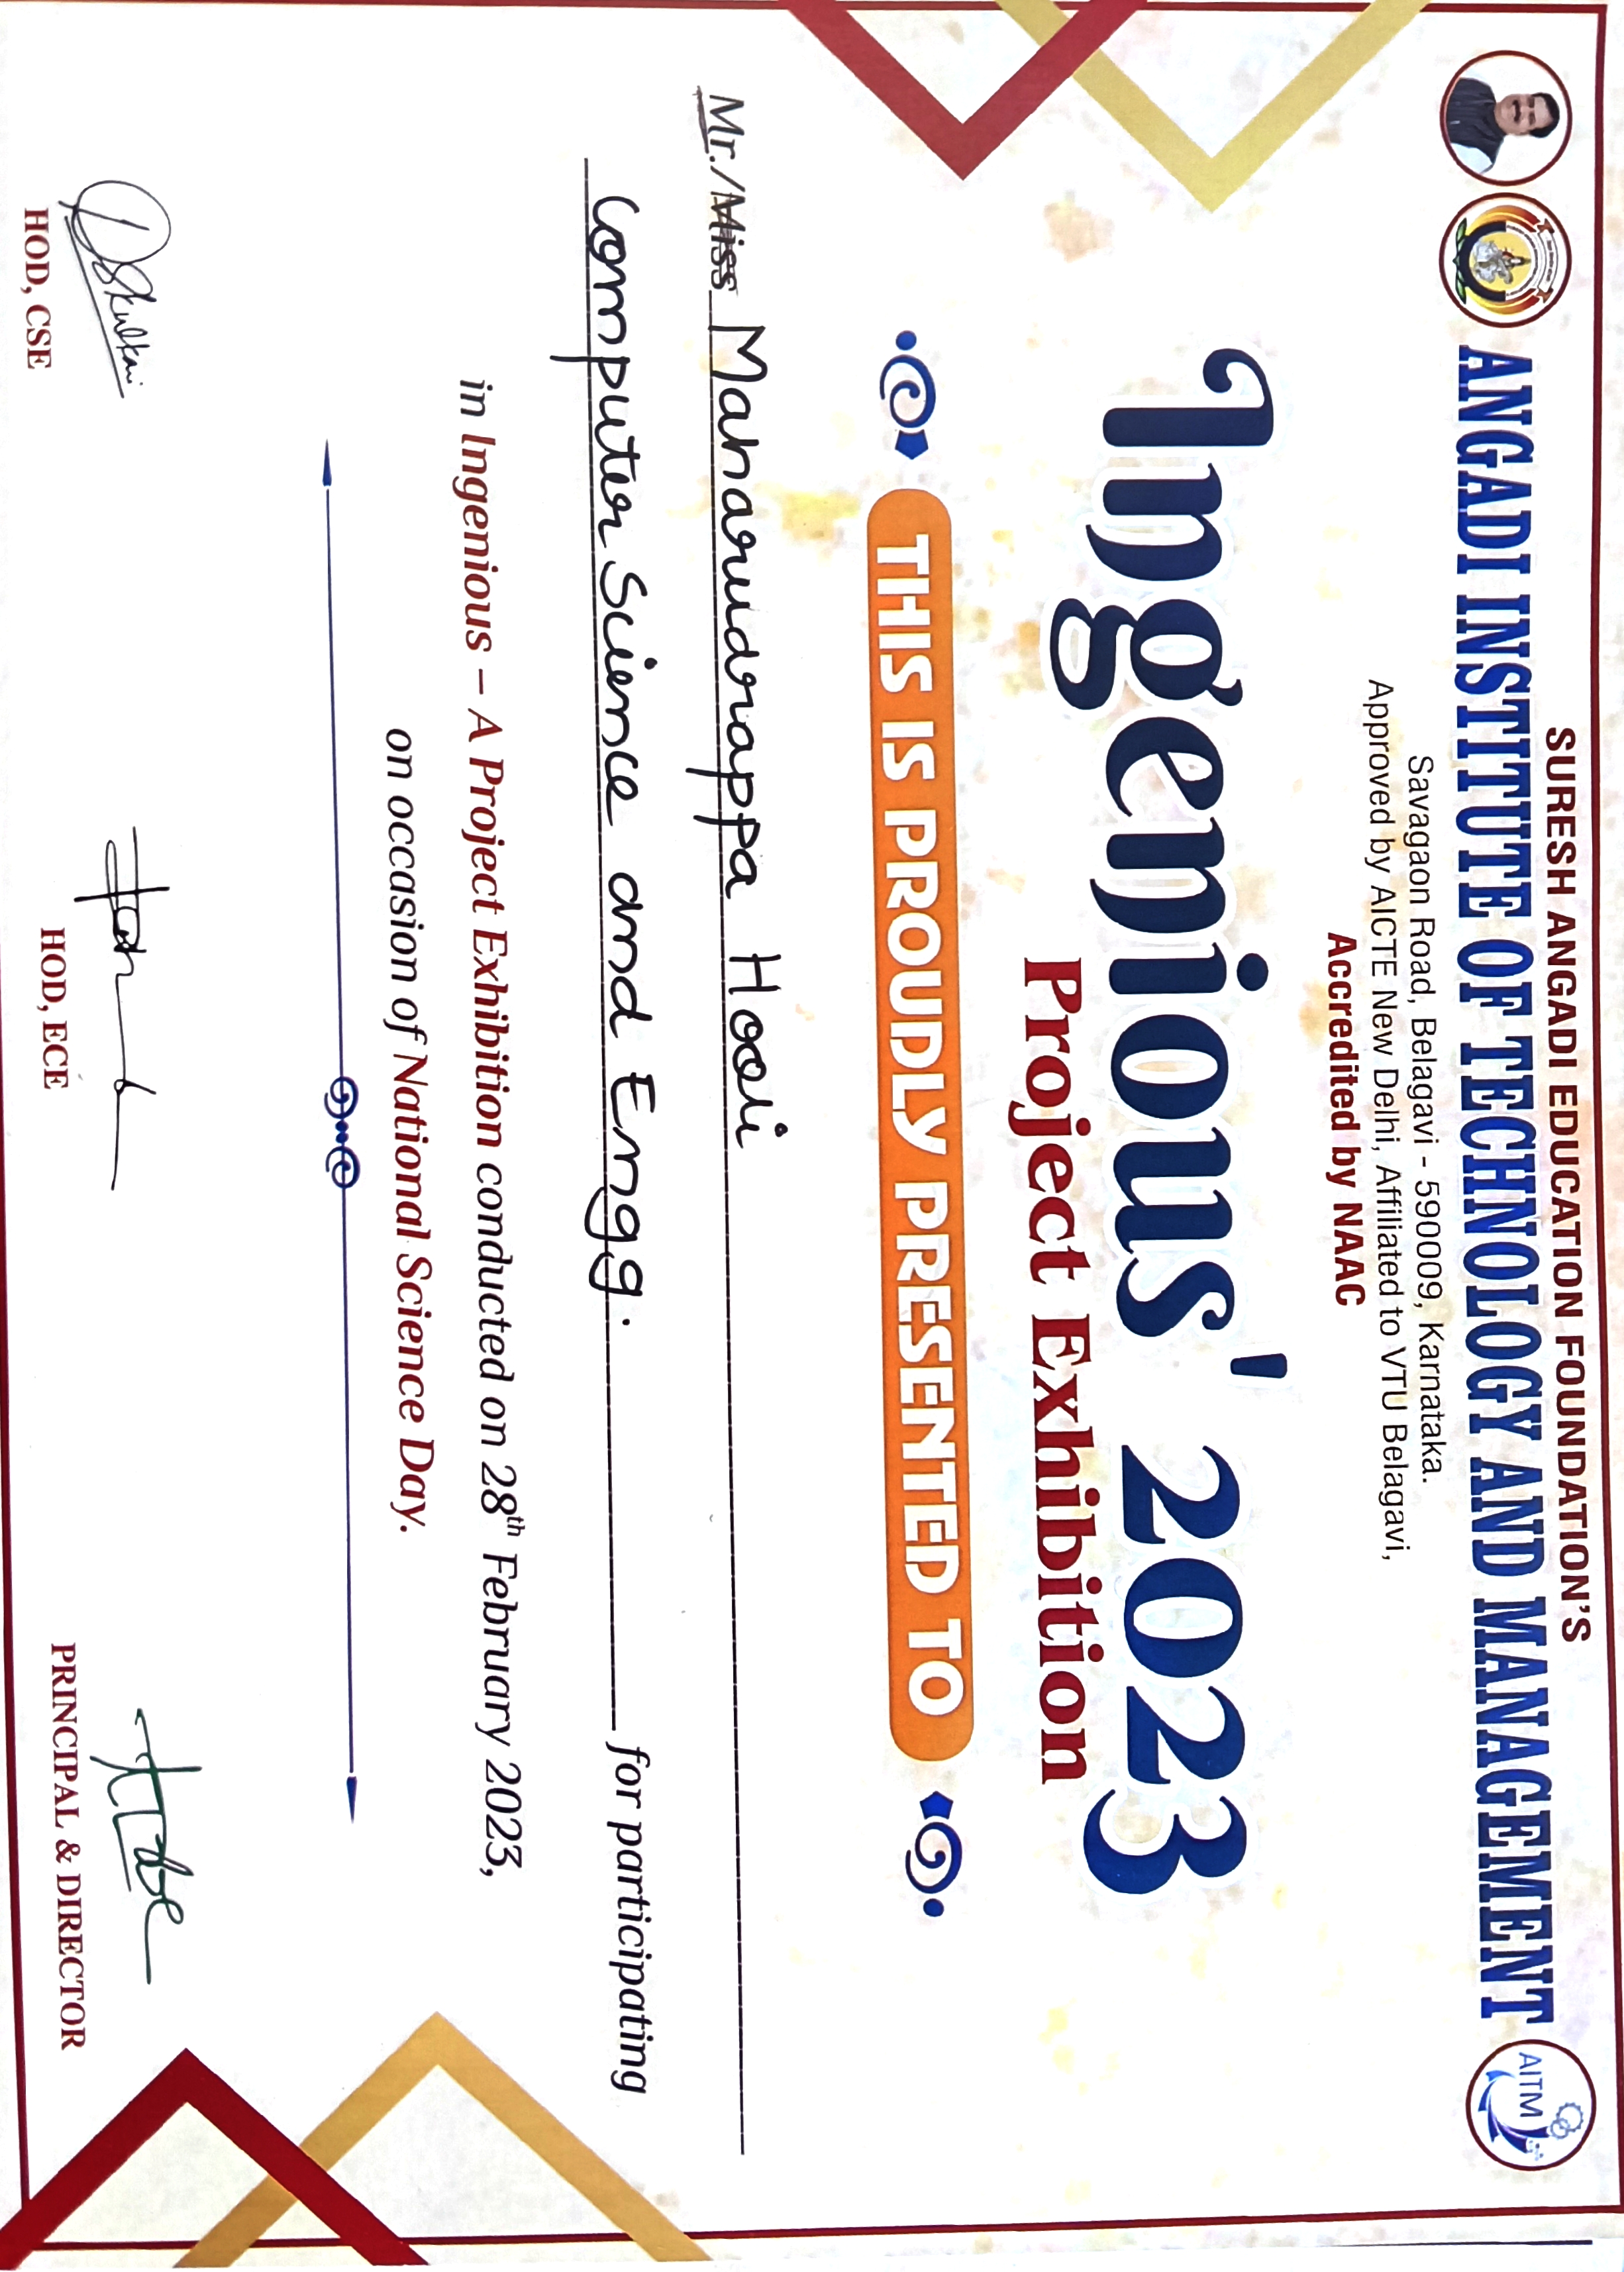 SURESH ANGADI EDUCATION FOUNDATION'S
ANGADI INSTITUTE OF TECHNOLOGY AND MANAGEMENT
AITM
Savagaon Road, Belagavi - 590009, Karnataka.
Approved by AICTE New Delhi, Affiliated to VTU Belagavi,
Accredited by NAAC
Ingenious' 2023
Project Exhibition
THIS IS PROUDLY PRESENTED TO
Mr./Miss Maharudrappa Hooli
Computer Science and Engg. for participating
in Ingenious – A Project Exhibition conducted on 28th February 2023,
on occasion of National Science Day.
HOD, CSE
HOD, ECE
PRINCIPAL & DIRECTOR